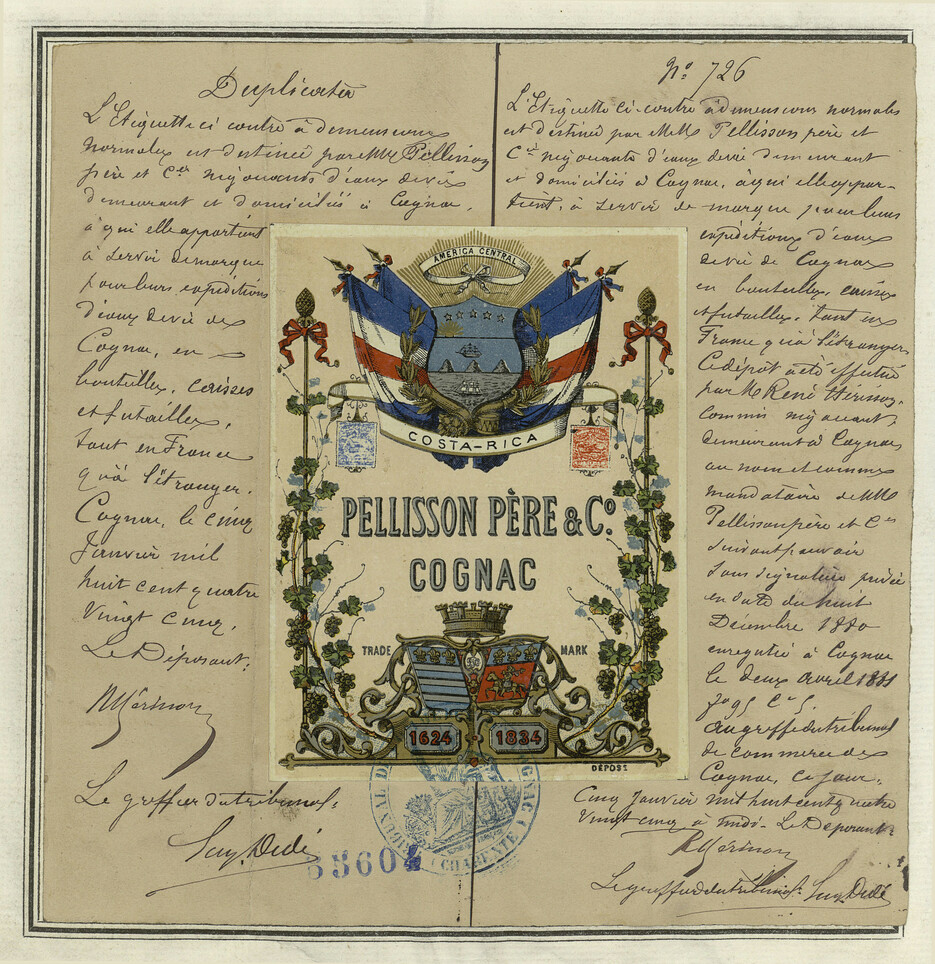 Duplicata
L'Etiquette ci contre à dimensions
normales est destinée par MM Pellisson
père et Cie négociants d'eaux de vie
demeurant et domiciliés à Cognac,
à qui elle appartient
à servir de marque
pour leurs expéditions
d'eaux de vie de
Cognac, en
bouteilles, caisses
et futailles,
tant en France
qu'à l'étranger.
Cognac, le cinq
Janvier mil
huit cent quatre
vingt cinq.
Le Déposant:
Le greffier du tribunal:
88604
No 726
L'Etiquette ci-contre à dimensions normales
est destinée par MM. Pellisson père et
Cie négociants d'eaux de vie demeurant
et domiciliés à Cognac, à qui elle appar-
tient, à servir de marque pour leurs
expéditions d'eaux
de vie de Cognac
en bouteilles, caisses
et futailles, tant en
France qu'à l'étranger
Ce dépôt a été effectué
par M. René Hérisson,
commis négociant,
demeurant à Cognac
au nom et comme
mandataire de MM
Pellisson père et Cie
suivant pouvoir
sous signature privée
en date du huit
Décembre 1880
enregistré à Cognac
le deux avril 1881
au greffe du tribunal
de commerce de
Cognac, ce jour,
Cinq Janvier mil huit cent quatre
vingt cinq à midi. Le Déposant:
Le greffier du tribunal:
AMERICA CENTRAL
COSTA-RICA
PELLISSON PÈRE & Co.
COGNAC
TRADE MARK
1624 1834
DÉPOSÉ
TRIBUNAL DE COGNAC
(CHARENTE)